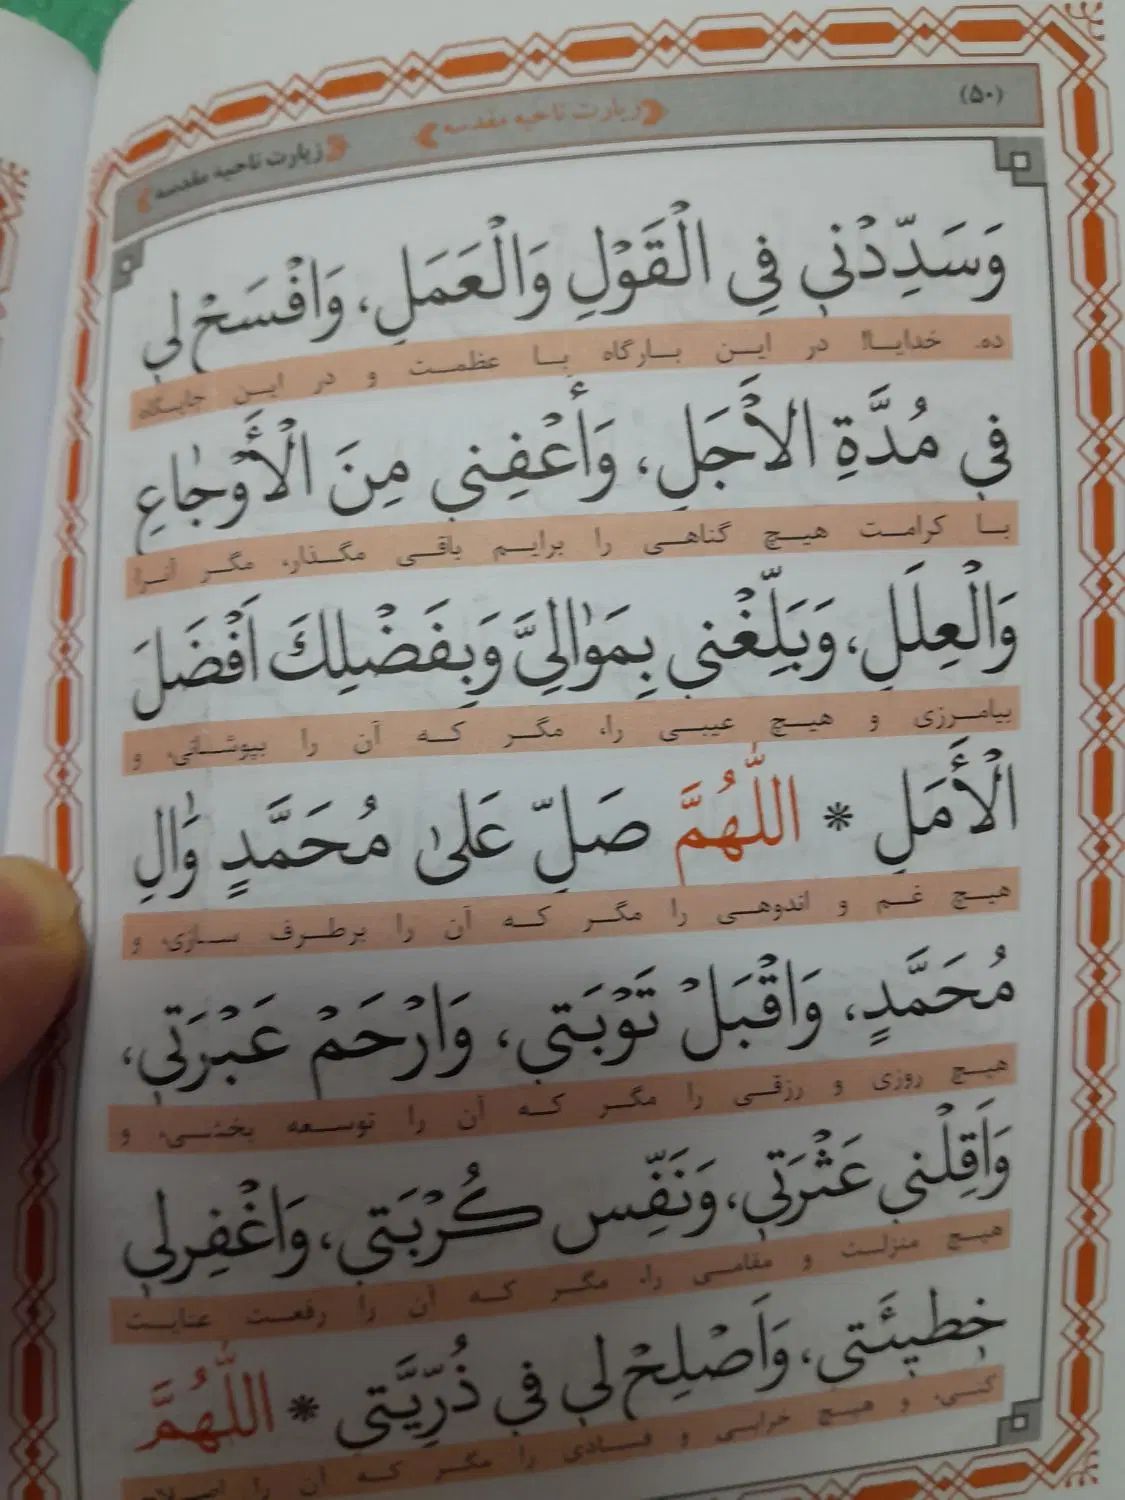 (۵۰)
زیارت ناحیه مقدسه
زیارت ناحیه مقدسه
وَسَدِّدْنی فِی الْقَوْلِ وَالْعَمَلِ، وَافْسَحْ لی
ده. خدایا! در این بارگاه با عظمت و در این جایگاه
فی مُدَّةِ الْأَجَلِ، وَأَعْفِنی مِنَ الْأَوْجٰاعِ
با کرامت هیچ گناهی را برایم باقی مگذار، مگر آنرا
وَالْعِلَلِ، وَبَلِّغْنی بِمَوٰالِیَّ وَبِفَضْلِكَ اَفْضَلَ
بیامرزی و هیچ عیبی را، مگر که آن را بپوشانی، و
الْأَمَلِ * اَللّٰهُمَّ صَلِّ عَلیٰ مُحَمَّدٍ وَٰالِ
هیچ غم و اندوهی را مگر که آن را برطرف سازی، و
مُحَمَّدٍ، وَاقْبَلْ تَوْبَتی، وَارْحَمْ عَبْرَتی،
هیچ روزی و رزقی را مگر که آن را توسعه بخشی، و
وَاَقِلْنی عَثْرَتی، وَنَفِّس كُرْبَتی، وَاغْفِرلی
هیچ منزلت و مقامی را، مگر که آن را رفعت عنایت
خطیئَتی، وَاَصْلِحْ لی فی ذُرِّیَّتی * اَللّٰهُمَّ
کنی، و هیچ خرابی و فسادی را مگر که آن را اصلاح